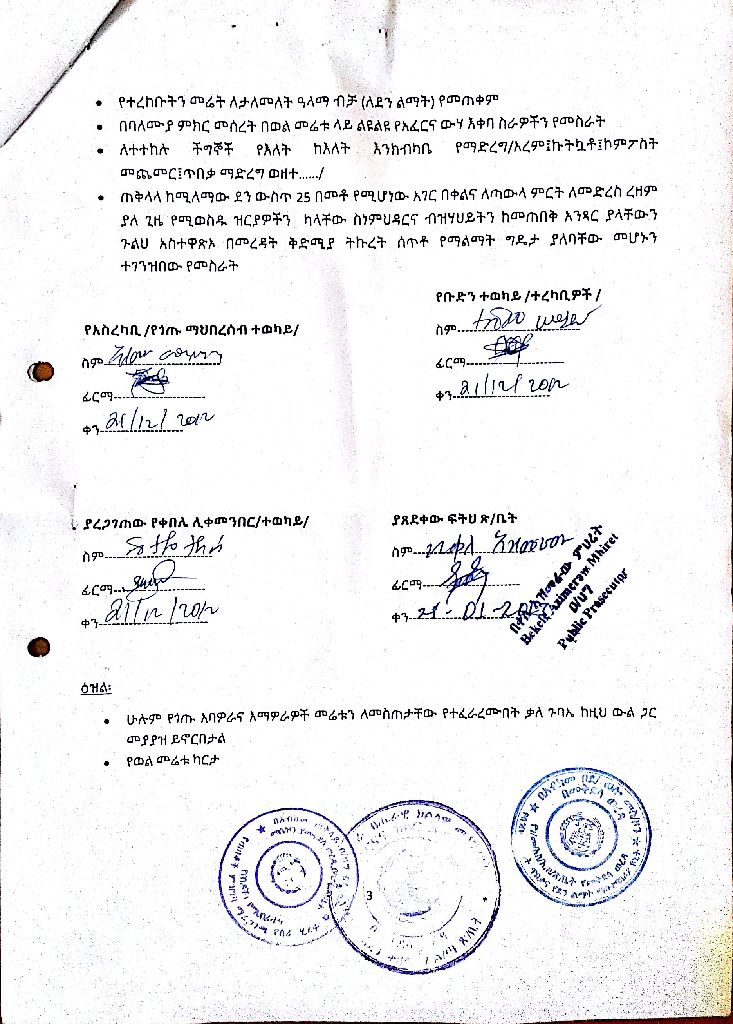 • የተረከቡትን መሬት ለታለመለት ዓላማ ብቻ (ለደን ልማት) የመጠቀም
• በባለሙያ ምክር መሰረት በወል መሬቱ ላይ ልዩልዩ የአፈርና ውሃ እቀባ ስራዎችን የመስራት
• ለተተከሉ ችግኞች የእለት ከእለት እንክብካቤ የማድረግ/አረም፤ኩትኳቶ፤ኮምፖስት
መጨመር፤ጥበቃ ማድረግ ወዘተ....../
• ጠቅላላ ከሚለማው ደን ውስጥ 25 በመቶ የሚሆነው አገር በቀልና ለጣውላ ምርት ለመድረስ ረዘም
ያለ ጊዜ የሚወስዱ ዝርያዎችን ካላቸው ስነምህዳርና ብዝሃህይትን ከመጠበቅ አንጻር ያላቸውን
ጉልህ አስተዋጽኦ በመረዳት ቅድሚያ ትኩረት ሰጥቶ የማልማት ግዴታ ያለባቸው መሆኑን
ተገንዝበው የመስራት
የቡድን ተወካይ /ተረካቢዎች /
ስም
ፊርማ
ቀን 21/12/2012
የአስረካቢ /የጎጡ ማህበረሰብ ተወካይ/
ስም
ፊርማ
ቀን 21/12/2012
ያረጋገጠው የቀበሌ ሊቀመንበር/ተወካይ/
ስም
ፊርማ
ቀን 21/12/2012
ያጸደቀው ፍትህ ጽ/ቤት
ስም በቀለ አዝመራው
ፊርማ
ቀን
በቀለ አዝመራው ምህረት
Bekele Azimeraw Mhiret
ዐ/ህግ
Public Prosecutor
ዕዝል፡
• ሁሉም የጎጡ አባዎራና እማዎራዎች መሬቱን ለመስጠታቸው የተፈራረሙበት ቃለ ጉባኤ ከዚህ ውል ጋር
መያያዝ ይኖርበታል
• የወል መሬቱ ካርታ
3